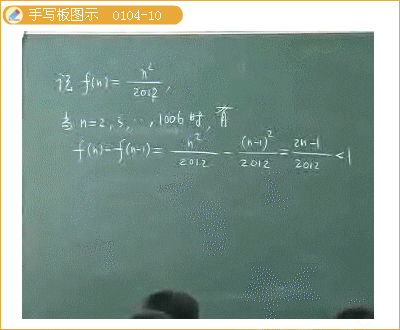 手写板图示 0104-10
设 f(n) = n²/2012,
当 n=2, 3, ..., 1006 时, 有
f(n)-f(n-1) = n²/2012 - (n-1)²/2012 = 2n-1/2012 < 1